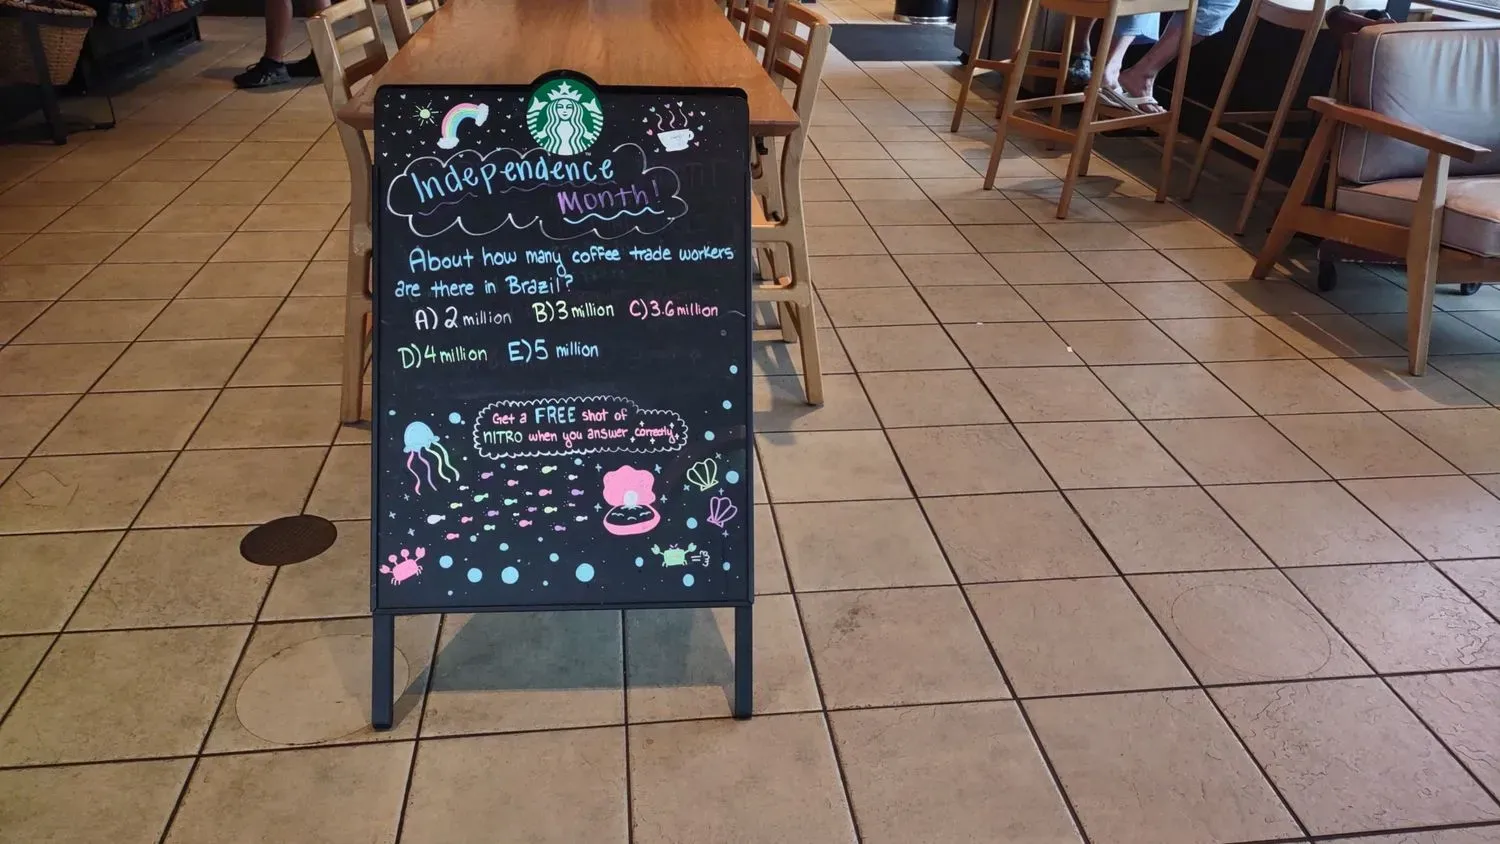 Independence
Month!
About how many coffee trade workers
are there in Brazil?
A) 2 million B) 3 million C) 3.6 million
D) 4 million E) 5 million
Get a FREE shot of
NITRO when you answer correctly